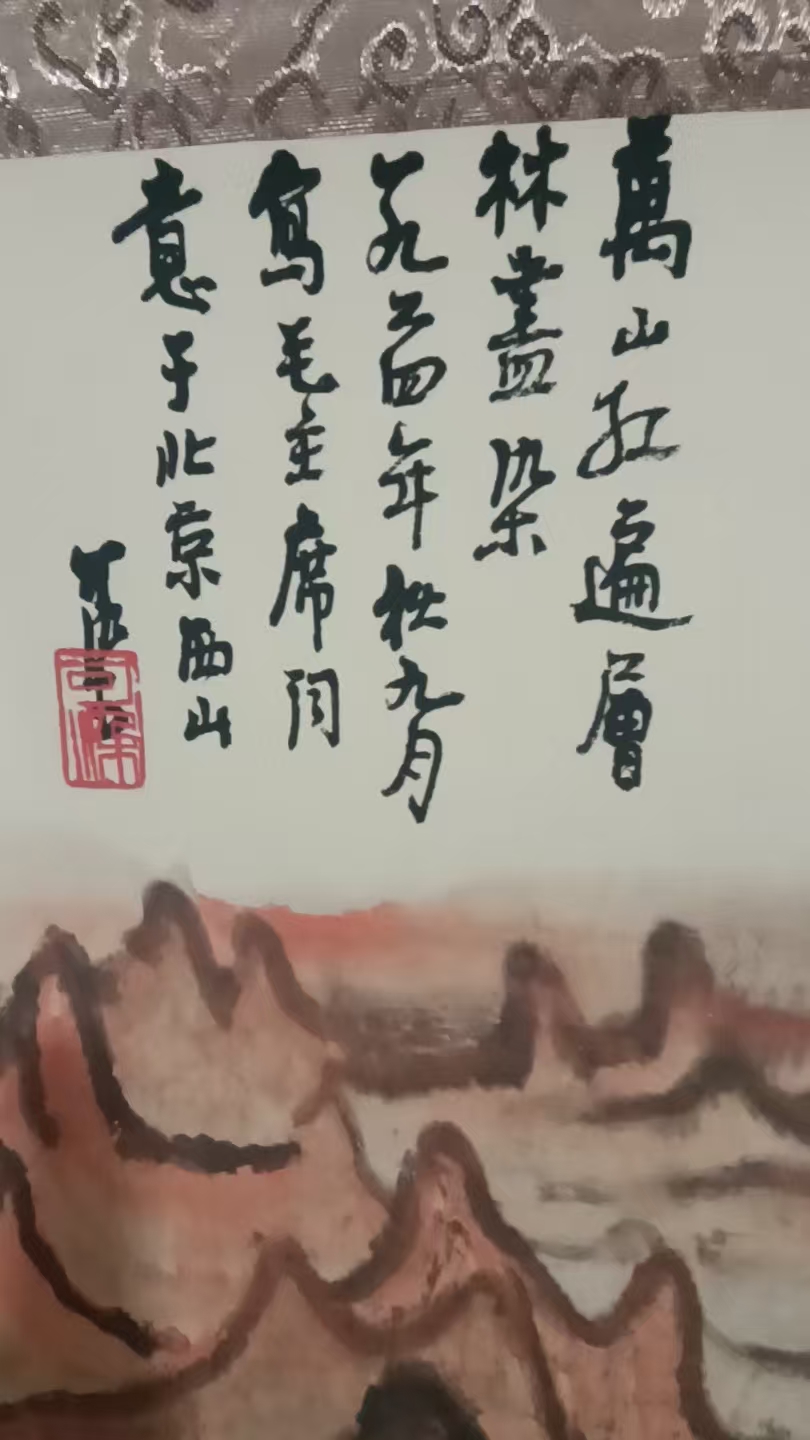 萬山紅遍層
林盡染
一九六四年秋九月
寫毛主席詞
意于北京西山
可染